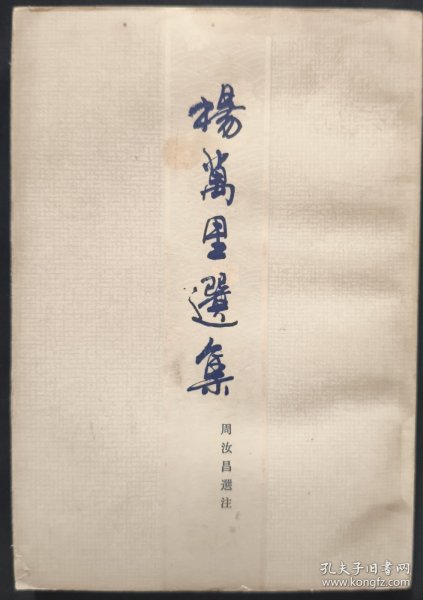 楊萬里選集
周汝昌選注
孔夫子旧书网
www.kongfz.com